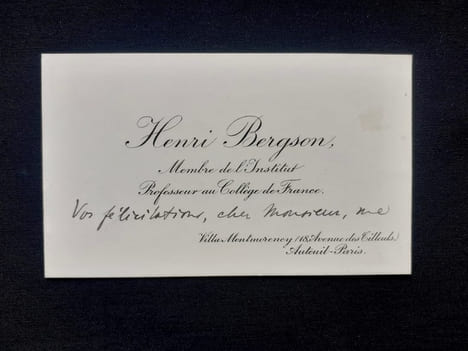 Henri Bergson,
Membre de l'Institut
Professeur au Collège de France.
Vos félicitations, cher Monsieur, me
Villa Montmorency (18, Avenue des Tilleuls)
Auteuil-Paris.